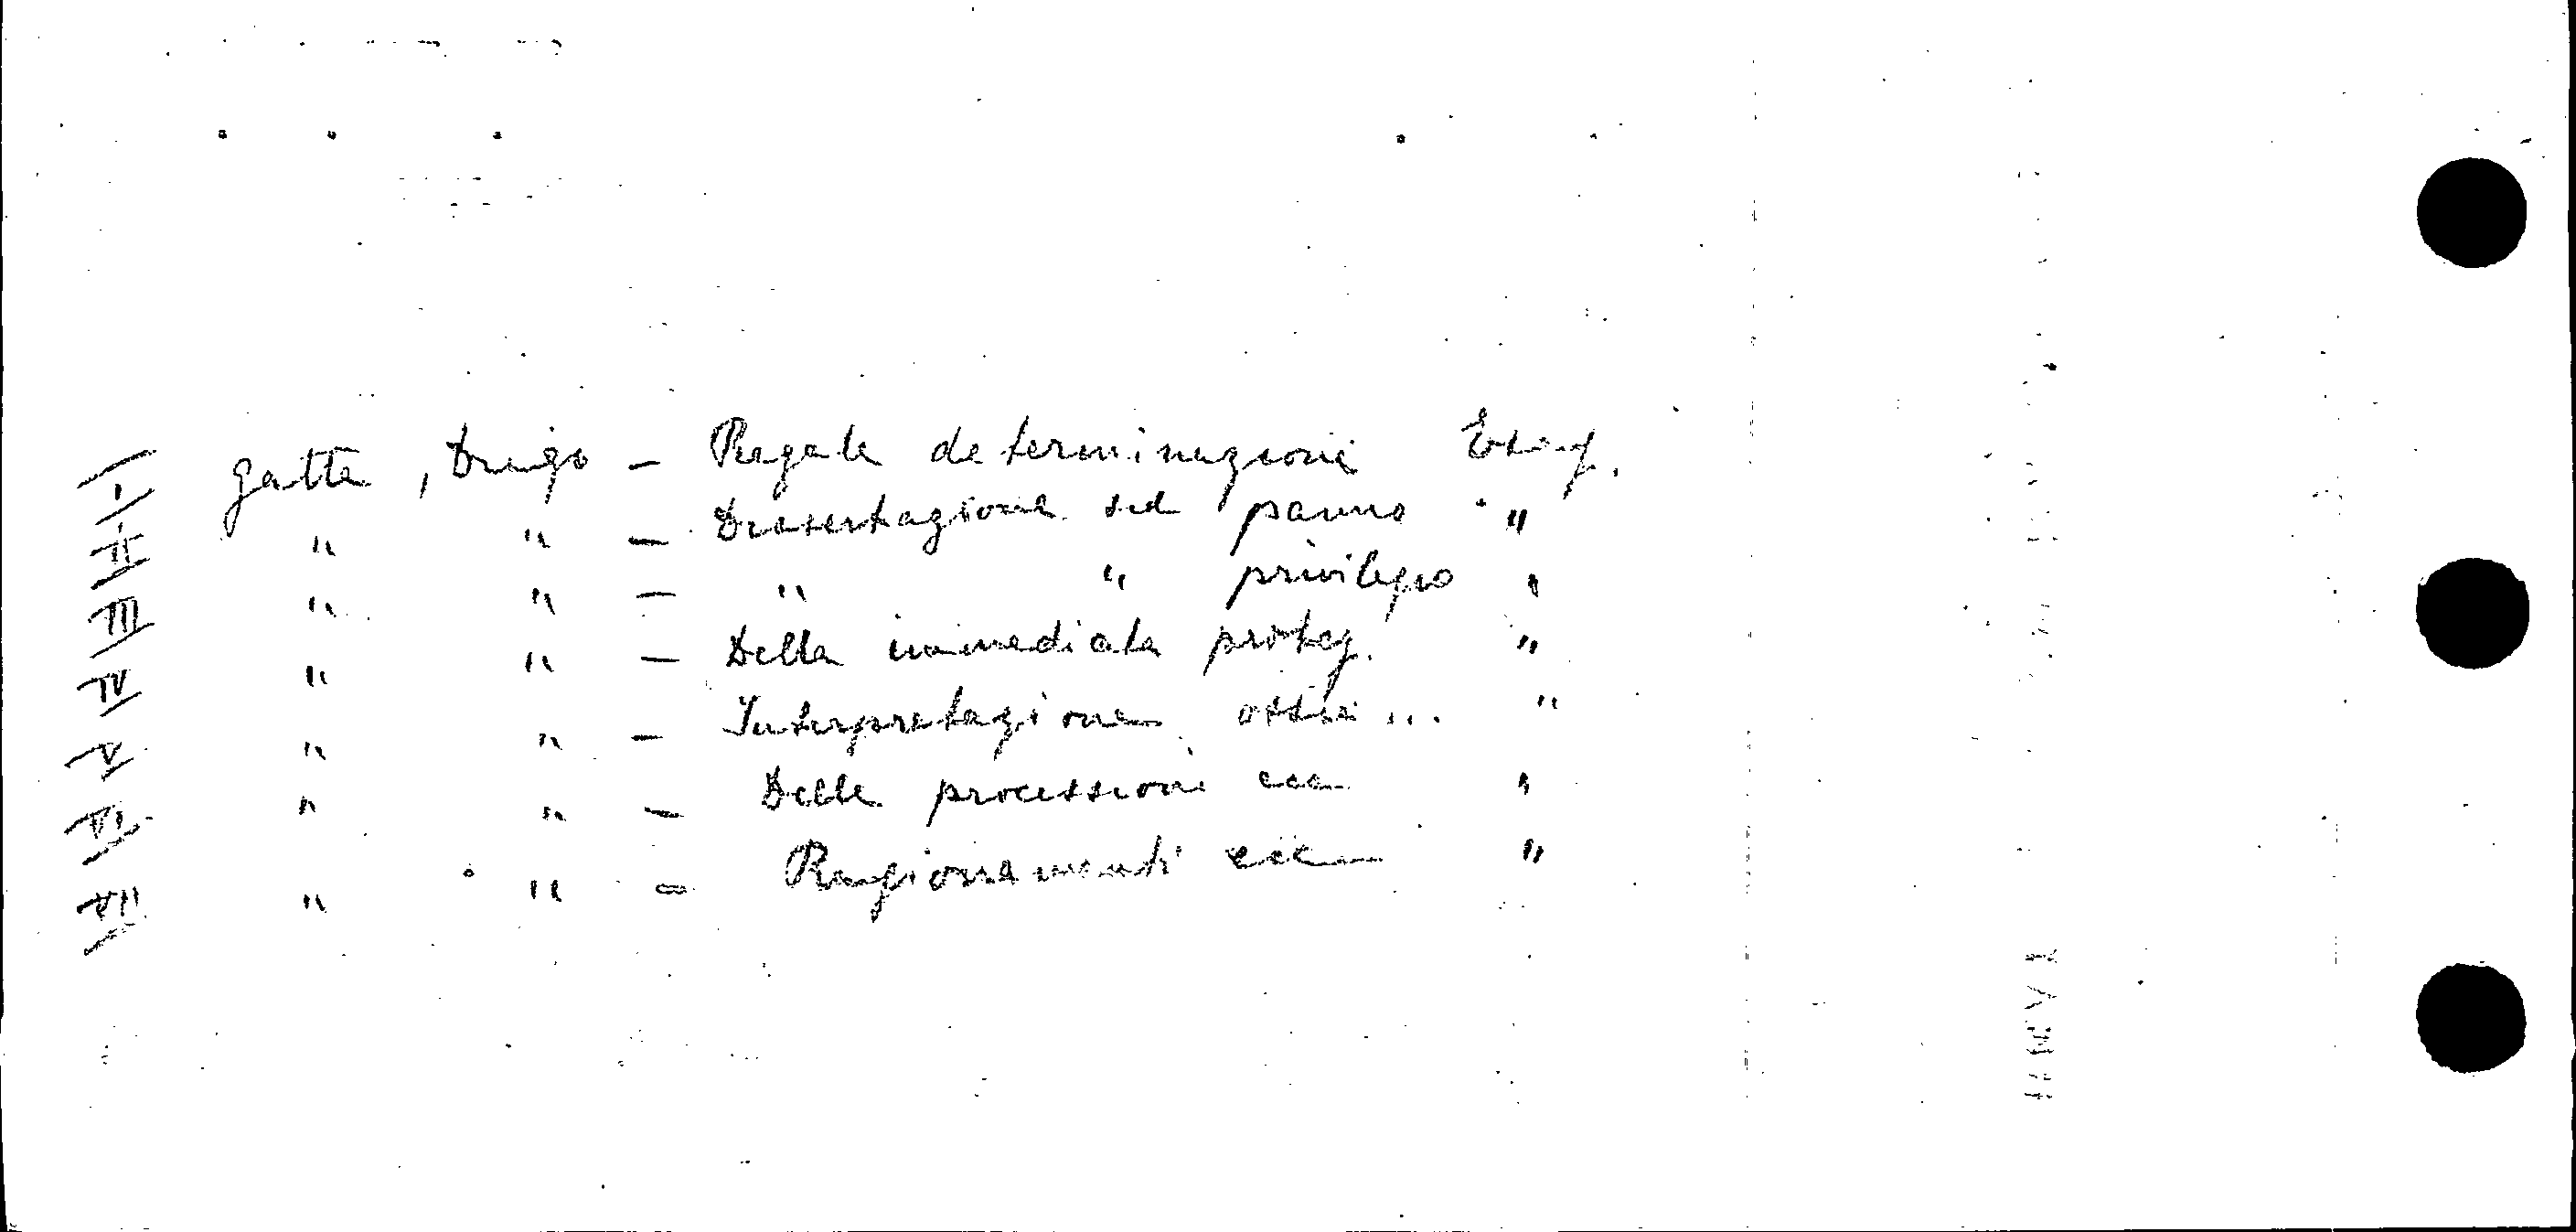 I Gatta, Diego - Regale determinazioni
II " " - Dissertazione sul panno "
III " " - " " privilegio "
IV " " - Della immediata protez. "
V " " - Interpretazione ossia ... "
VI " " - Delle processioni ecc "
VII " " - Ragionamenti ecc "